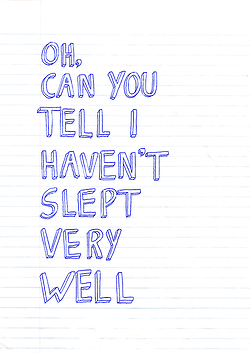 OH,
CAN YOU
TELL I
HAVEN'T
SLEPT
VERY
WELL